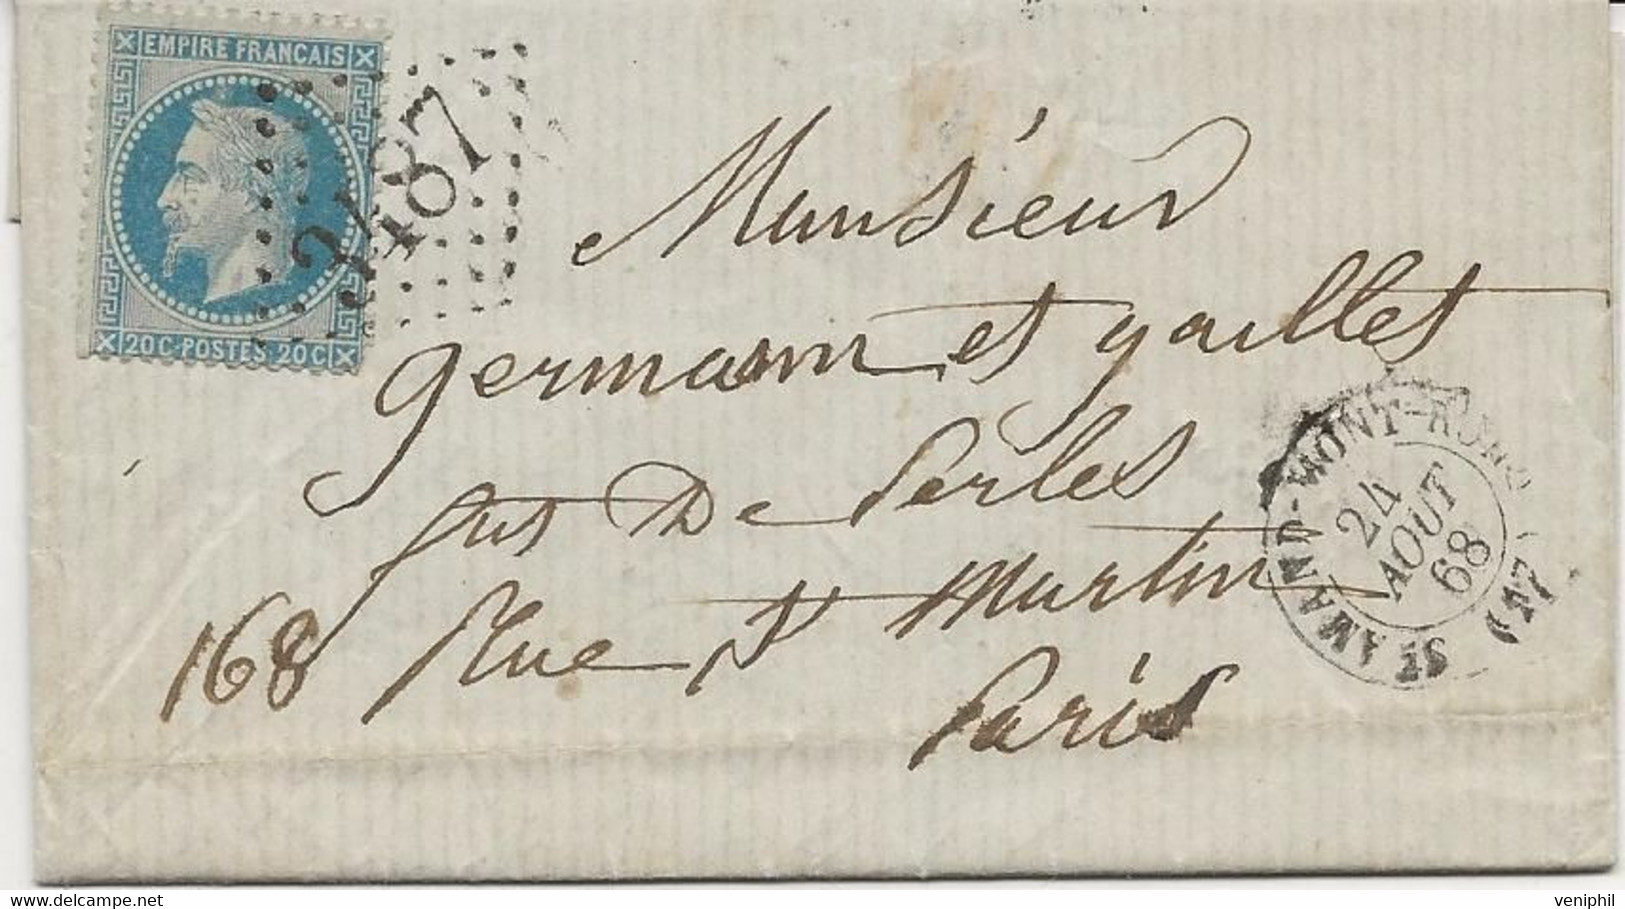 EMPIRE FRANCAIS
2487
20 C·POSTES·20 C
Monsieur
germann et gaillet
fus De Perles
168 Rue St Martin
Paris
ST AMAND-MONT-ROND (17)
24
AOUT
68
www.delcampe.net
veniphil